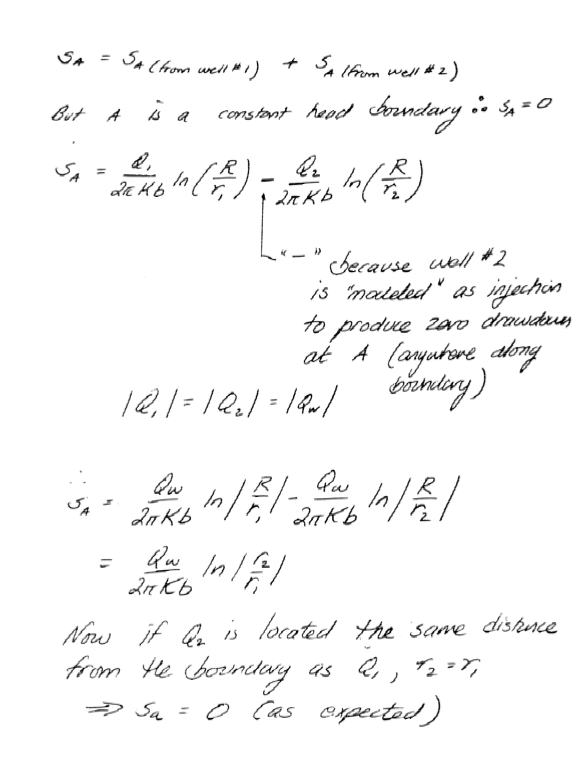 S_A = S_A (from well #1) + S_A (from well #2)
But A is a constant head boundary ∴ S_A = 0
S_A = Q_1/(2πKb) ln(R/r_1) - Q_2/(2πKb) ln(R/r_2)
"-" because well #2
is "modeled" as injection
to produce zero drawdown
at A (anywhere along
boundary)
|Q_1| = |Q_2| = |Q_w|
∴ S_A = Q_w/(2πKb) ln|R/r_1| - Q_w/(2πKb) ln|R/r_2|
= Q_w/(2πKb) ln|r_2/r_1|
Now if Q_2 is located the same distance
from the boundary as Q_1, r_2 = r_1
⇒ S_a = 0 (as expected)